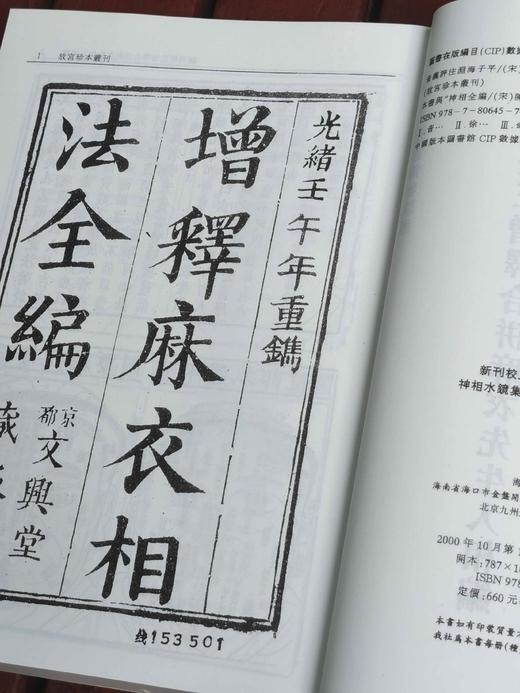 1 故宮珍本叢刊
光緒壬午年重鐫
增釋麻衣相
法全編
京都文興堂
线153501
圖書在版編目(CIP)數據
(故宮珍本叢刊)
本書與"神相全編/(宋)
ISBN 978-7-80645-7
Ⅰ.音… Ⅱ.徐… Ⅲ.
中國版本圖書館CIP數據
新刊校
神相水鏡集
海南省海口市金盤開
北京九州
2000年10月第1
開本:787×1
ISBN 978
定價:660元
本書如有印裝質量
我社爲本書每冊(種)